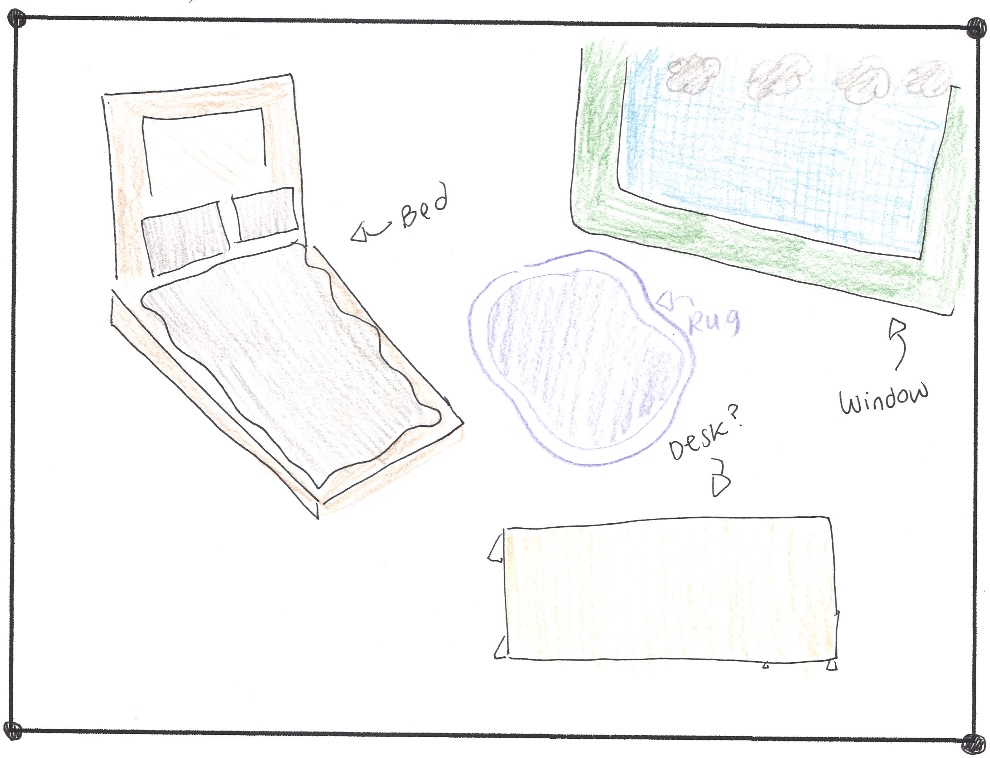 Bed
Rug
Window
Desk?